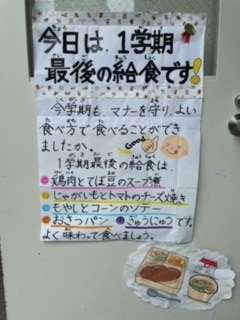 今日は、1学期
最後の給食です!
今学期も、マナーを守り、よい
食べ方で食べることができ
ましたか。
Good
1学期最後の給食は、
鶏肉とてぼ豆のスープ煮
じゃがいもとトマトのチーズ焼き
もやしとコーンのソテー
おさつパン ぎゅうにゅう です。
よく味わって食べましょう。